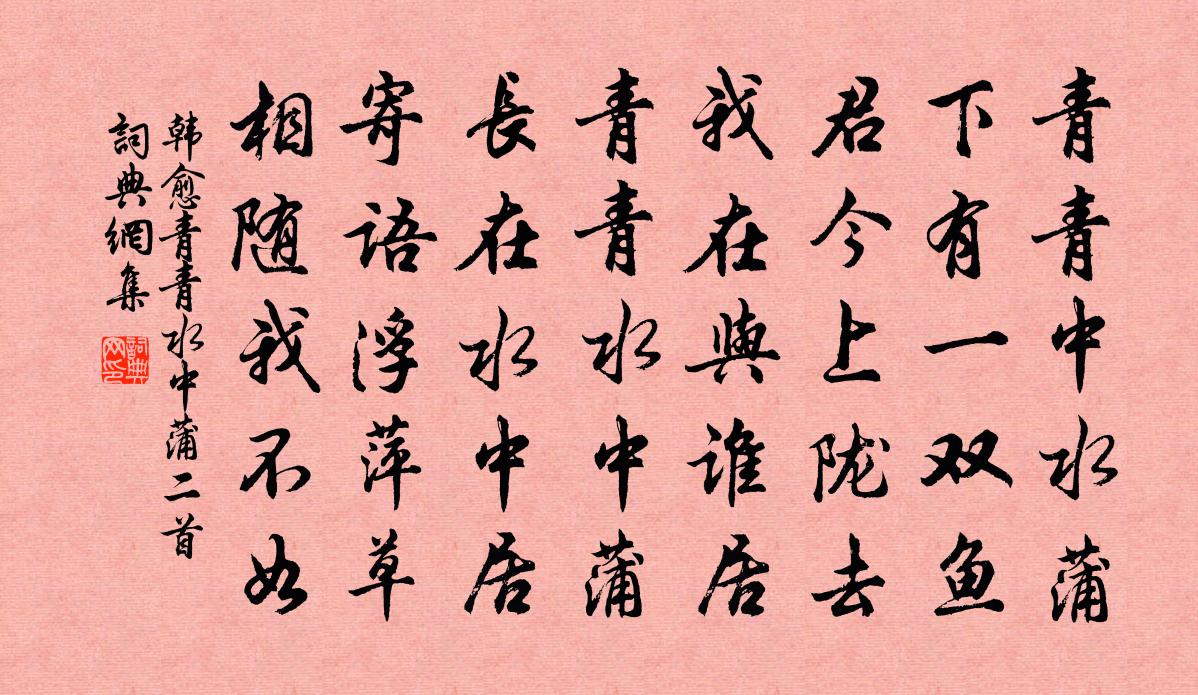 青青中水蒲
下有一双鱼
君今上陇去
我在與谁居
青青水中蒲
長在水中居
寄语浮萍草
相随我不如
韩愈青青水中蒲二首
詞典網集
詞典网印